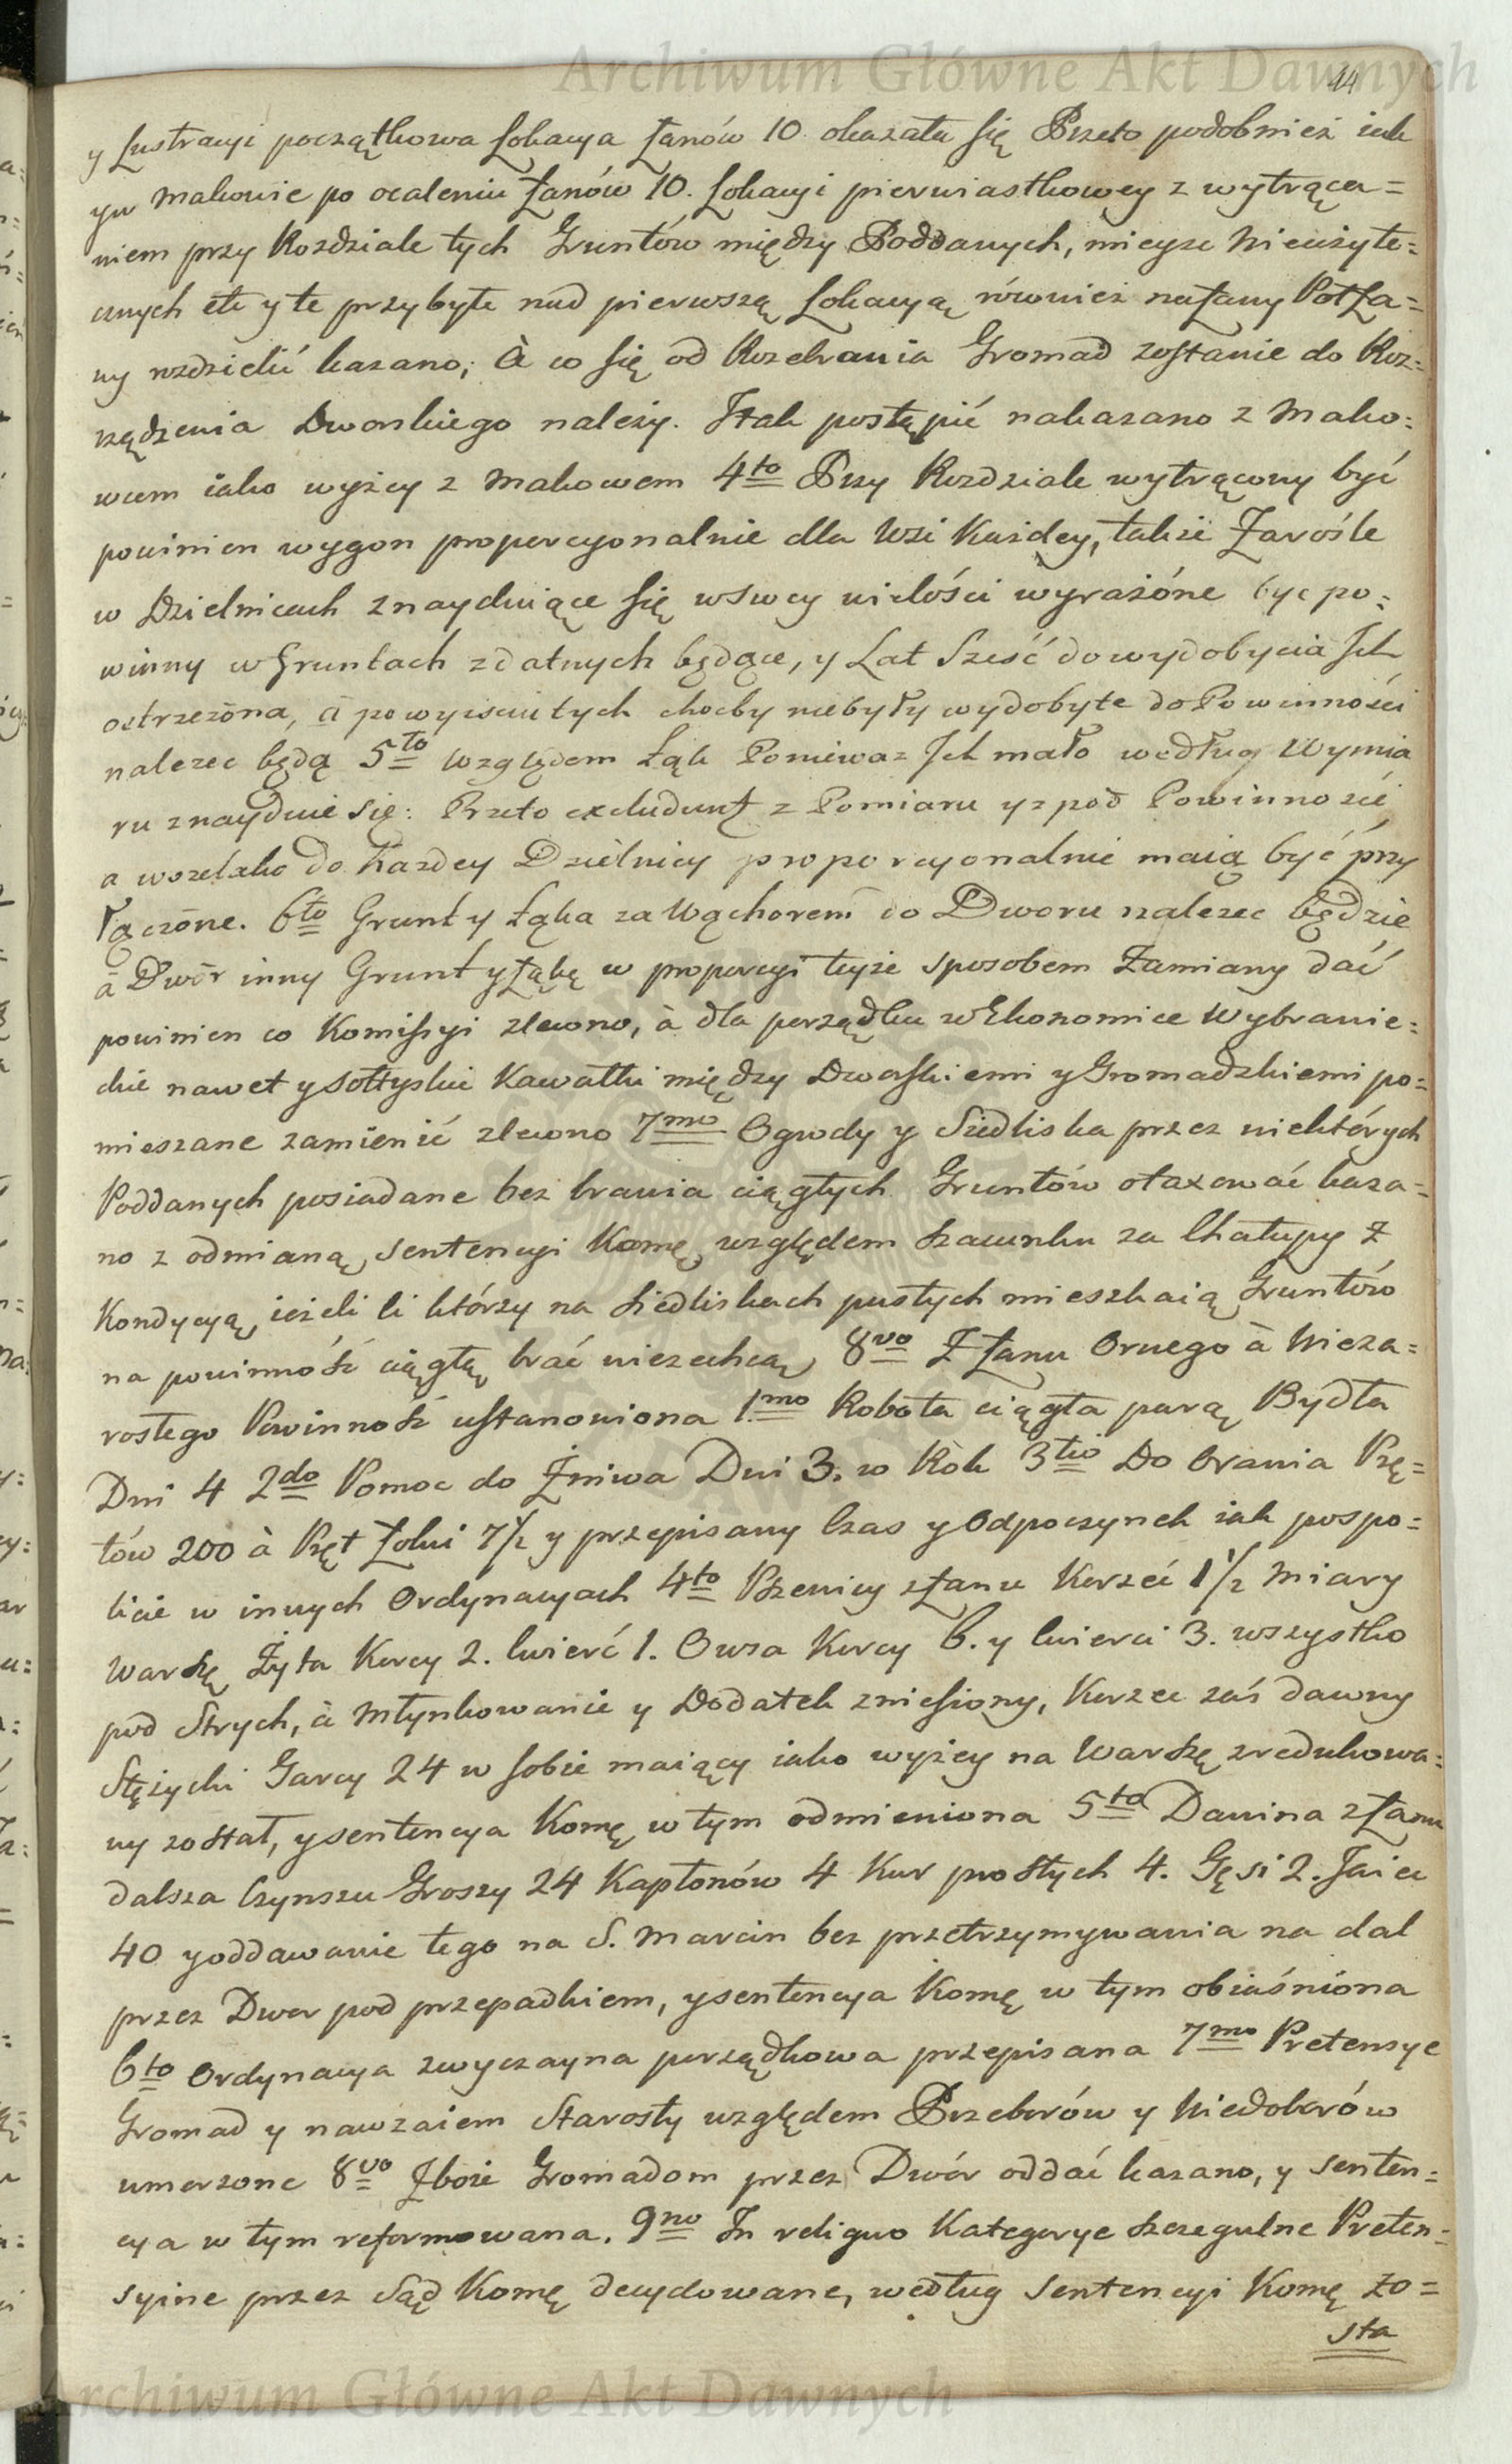 Archiwum Główne Akt Dawnych
44
y Lustracyi początkowa Lokacya Łanów 10 okazała się Przeto podobnież iak
yw Makowie po ocaleniu Łanów 10. Lokacyi pierwiastkowey z wytrąca=
niem przy Rozdziale tych Gruntów między Poddanych, mieysc Nieużyte=
cznych etc y te przybyłe nad pierwszą Lokacyą również na Łany Poł Ła=
ny rozdzielić kazano; à co się od Rozebrania Gromad zostanie do Roz=
rządzenia Dworskiego należy. I tak postąpić nakazano z Mako=
wcem iako wyżey z Makowem 4to Przy Rozdziale wytrącony być
powinien wygon proporcyonalnie dla Wsi Każdey, także Zarośle
w Dzielnicach znayduiące się wswey wielości wyrażóne byc po=
winny w Gruntach zdatnych będące, y Lat Sześć do wydobycia Ich
ostrzeżóna, à po wyisciu tych choćby niebyły wydobyte do Powinności
nalezec będą 5to Względem Łąk Poniewaz Ich mało według Wymia
ru znayduie się: Przeto excludunt z Pomiaru y z pod Powinnosci
a wszelako do Kazdey Dzielnicy proporcyonalnie maią być przy
łączóne. 6to Grunt y Łąka za Wąchorem do Dworu nalezec będzie
à Dwór inny Grunt y Łąkę w proporcyi teyże sposobem Zamiany dać
powinien co Komissyi zlecono, à dla porządku w Ekonomice Wybranie=
ckie nawet y sołtyskie Kawałki między Dworskiemi y Gromadzkiemi po=
mieszane zamienić zlecono 7mo Ogrody y Siedliska przez niektórych
Poddanych posiadane bez brania ciągłych Gruntów otaxować kaza=
no z odmianą sentencyi Komę względem szacunku za Chałupy z
Kondycyą, ieżeli li którzy na Siedliskach pustych mieszkaią Gruntów
na powinność ciągłą brać niezechcą, 8vo Z Łanu Ornego à Nieza=
rosłego Powinność ustanowiona 1mo Robota ciągła parą Bydła
Dni 4 2do Pomoc do Żniwa Dni 3. w Rok 3tio Do Orania Prę=
tów 200 à Pręt Łokci 7½ y przepisany Czas y Odpoczynek iak pospo=
licie w innych Ordynacyach 4to Pszenicy z Łanu Korzeć 1½ Miary
Warszę Żyta Korcy 2. Cwierć 1. Owsa Korcy 6. y Cwierci 3. wszystko
pod Strych, à Młynkowanie y Dodatek zniesiony, Korzec zaś dawny
Stężycki Garcy 24 w sobie maiący iako wyżey na Warszę zredukowa=
ny został, y sentencya Komę w tym odmieniona 5to Danina z Łanu
dalsza Czynszu Groszy 24 Kapłonów 4 Kur prostych 4. Gęsi 2. Jaiec
40 y oddawanie tego na S. Marcin bez przetrzymywania na dal
przez Dwor pod przepadkiem, y sentencya Komę w tym obiaśniona
6to Ordynacya zwyczayna porządkowa przepisana 7mo Pretensye
Gromad y nawzaiem Starosty względem Przeborów y Niedoborów
umorzone 8vo Zboże Gromadom przez Dwór oddać kazano, y senten=
cya w tym reformowana. 9no In reliquo Kategorye szczegulne Preten=
syine przez Sąd Komę decydowane, według Sentencyi Komę zo=
sta
Archiwum Główne Akt Dawnych